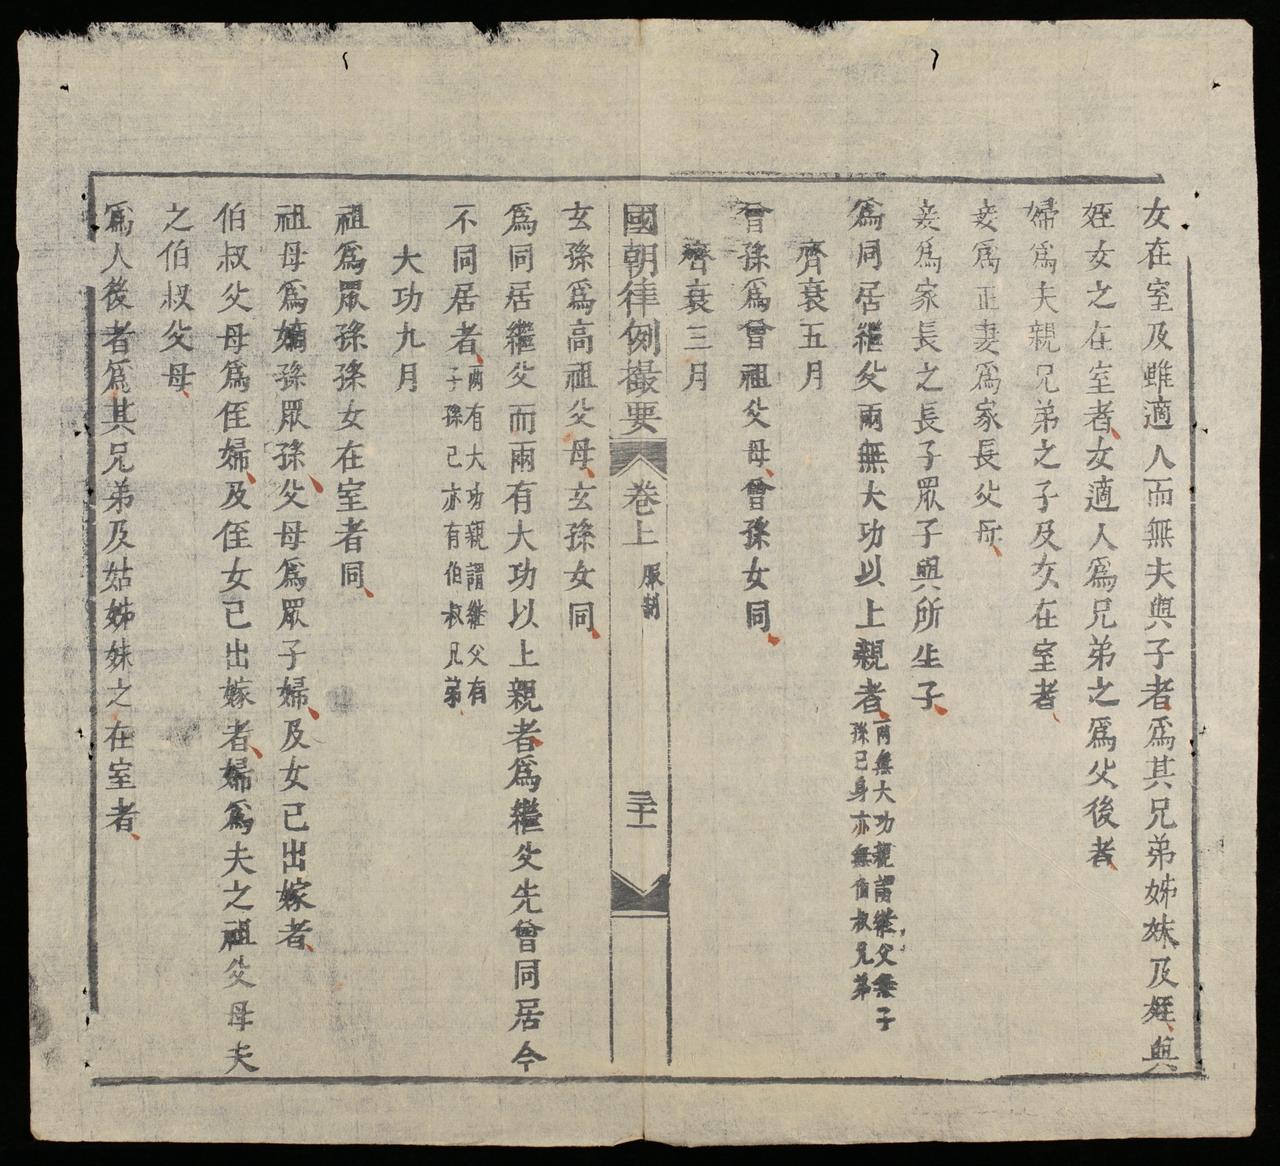 女在室及雖適人而無夫與子者爲其兄弟姊妹及姪與
姪女之在室者女適人爲兄弟之爲父後者
婦爲夫親兄弟之子及女在室者
妾爲正妻爲家長父母
妾爲家長之長子眾子與所生子
爲同居繼父兩無大功以上親者兩無大功親謂繼父無子
孫已身亦無伯叔兄弟
齊衰五月
曾孫爲曾祖父母曾孫女同
齊衰三月
國朝律例撮要 卷上 服制 三十一
玄孫爲高祖父母玄孫女同
爲同居繼父而兩有大功以上親者爲繼父先曾同居今
不同居者兩有大功親謂繼父有
子孫已亦有伯叔兄弟
大功九月
祖爲眾孫孫女在室者同
祖母爲嫡孫眾孫父母爲眾子婦及女已出嫁者
伯叔父母爲侄婦及侄女已出嫁者婦爲夫之祖父母夫
之伯叔父母
爲人後者爲其兄弟及姑姊妹之在室者